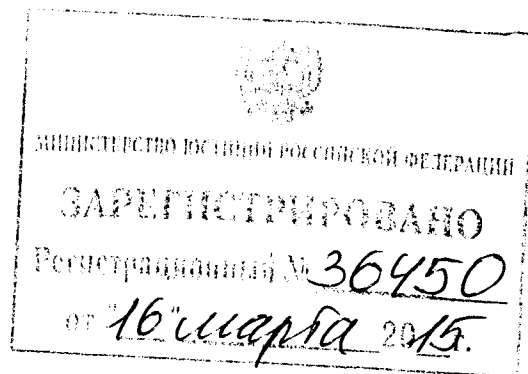 МИНИСТЕРСТВО ЮСТИЦИИ РОССИЙСКОЙ ФЕДЕРАЦИИ
ЗАРЕГИСТРИРОВАНО
Регистрационный № 36450
от "16" марта 2015г.